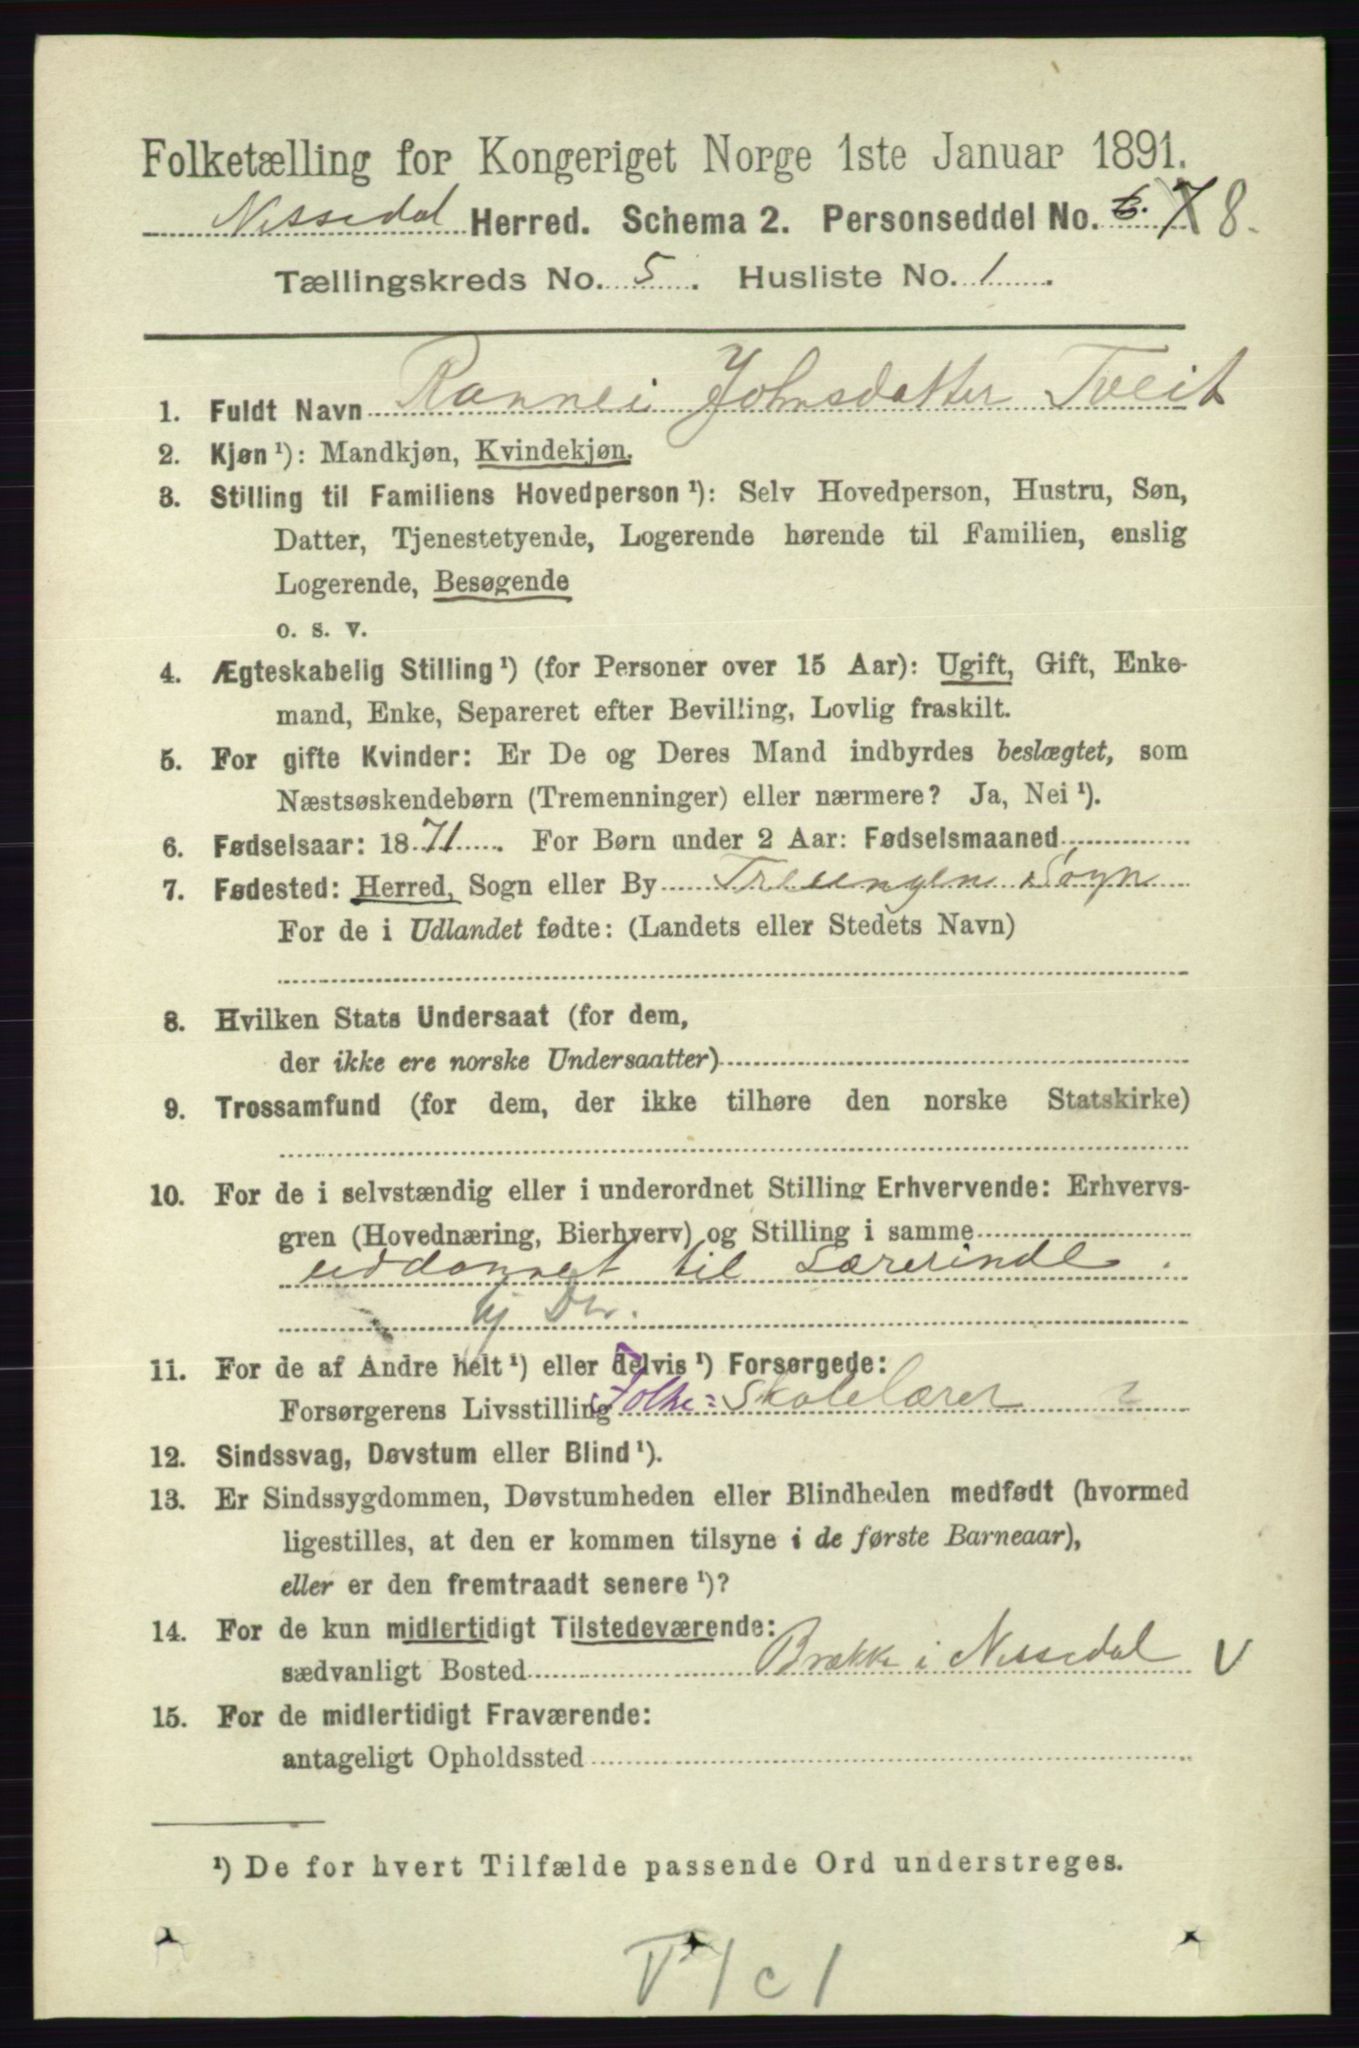 Folketælling for Kongeriget Norge 1ste Januar 1891.
Nissedal Herred. Schema 2. Personseddel No. 6. 7 8.
Tællingskreds No. 5. Husliste No. 1.
1. Fuldt Navn Rannei Johnsdatter Tveit
2. Kjøn ¹): Mandkjøn, Kvindekjøn.
3. Stilling til Familiens Hovedperson ¹): Selv Hovedperson, Hustru, Søn,
Datter, Tjenestetyende, Logerende hørende til Familien, enslig
Logerende, Besøgende
o. s. v.
4. Ægteskabelig Stilling ¹) (for Personer over 15 Aar): Ugift, Gift, Enke-
mand, Enke, Separeret efter Bevilling, Lovlig fraskilt.
5. For gifte Kvinder: Er De og Deres Mand indbyrdes beslægtet, som
Næstsøskendebørn (Tremenninger) eller nærmere? Ja, Nei ¹).
6. Fødselsaar: 1871. For Børn under 2 Aar: Fødselsmaaned
7. Fødested: Herred, Sogn eller By Treungen Sogn
For de i Udlandet fødte: (Landets eller Stedets Navn)
8. Hvilken Stats Undersaat (for dem,
der ikke ere norske Undersaatter)
9. Trossamfund (for dem, der ikke tilhøre den norske Statskirke)
10. For de i selvstændig eller i underordnet Stilling Erhvervende: Erhvervs-
gren (Hovednæring, Bierhverv) og Stilling i samme
uddannet til Lærerinde.
11. For de af Andre helt ¹) eller delvis ¹) Forsørgede:
Forsørgerens Livsstilling Folke=Skolelærer
12. Sindssvag, Døvstum eller Blind ¹).
13. Er Sindssygdommen, Døvstumheden eller Blindheden medfødt (hvormed
ligestilles, at den er kommen tilsyne i de første Barneaar),
eller er den fremtraadt senere ¹)?
14. For de kun midlertidigt Tilstedeværende:
sædvanligt Bosted Brække i Nissedal V
15. For de midlertidigt Fraværende:
antageligt Opholdssted
¹) De for hvert Tilfælde passende Ord understreges.